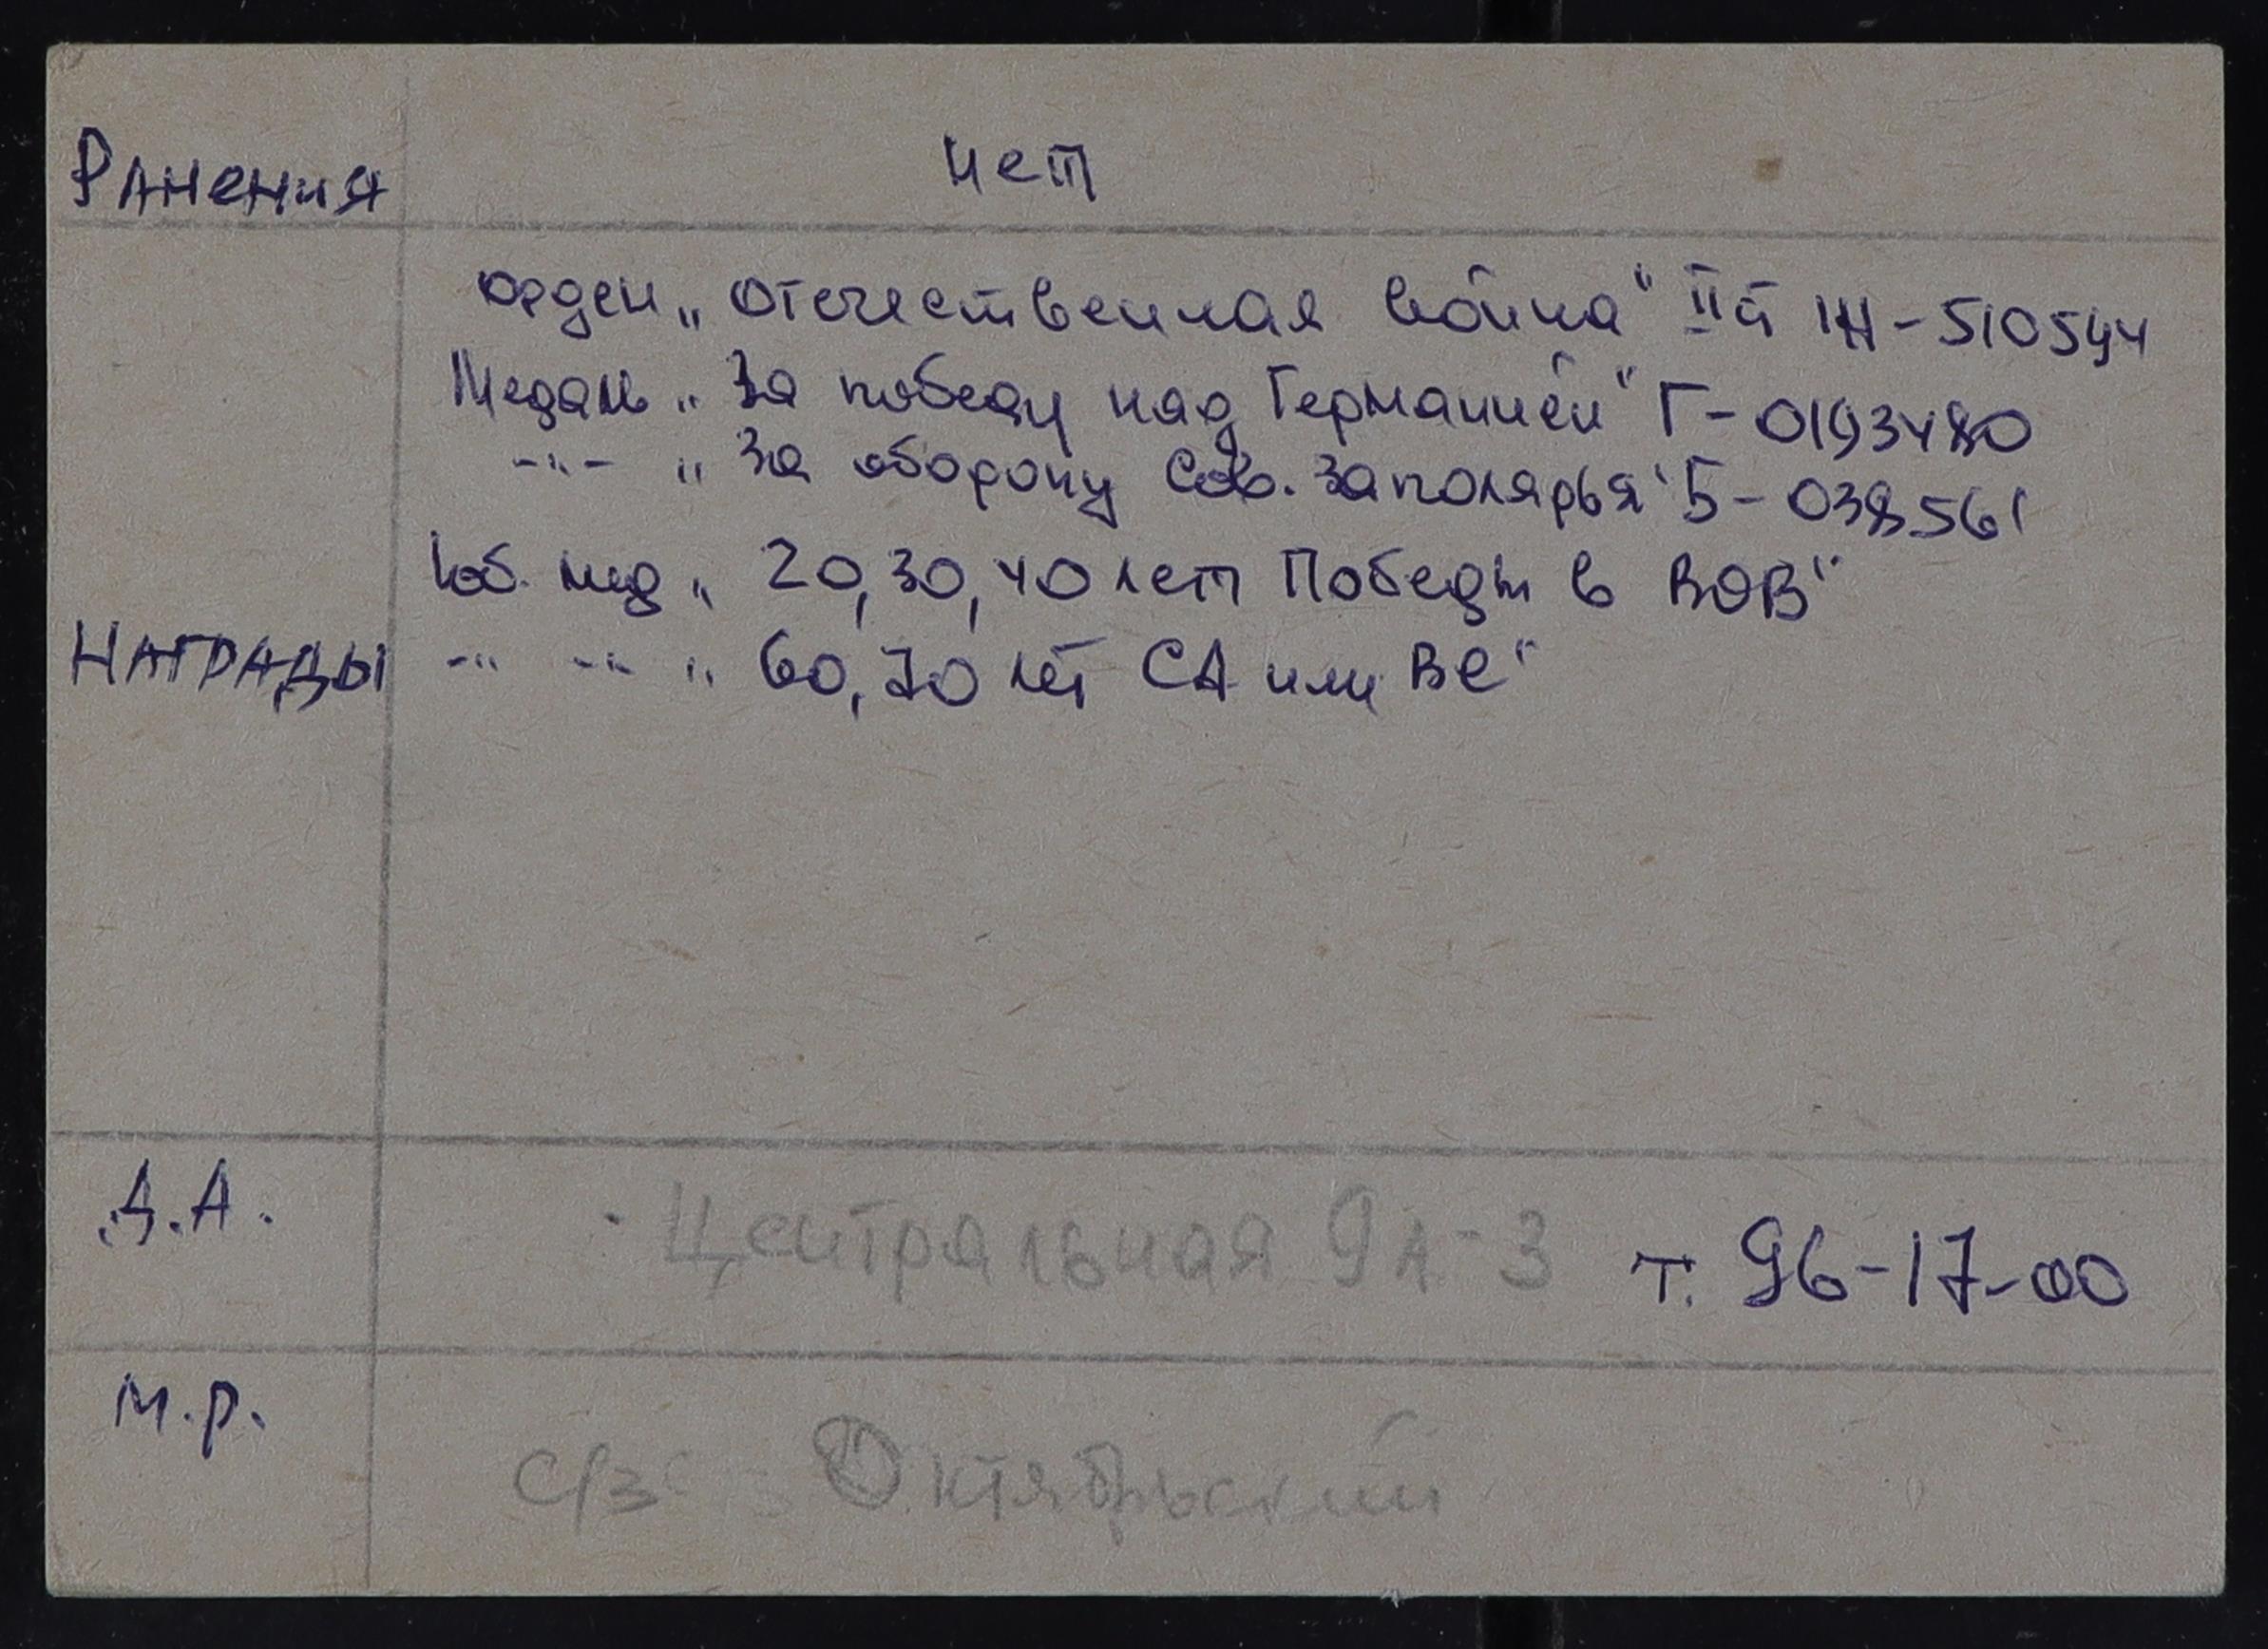 Ранения нет
орден „Отечественная война" II ст Н-510544
Медаль „За победу над Германией" Г-0193480
-"- „За оборону Сов. Заполярья" Б-038561
Юб. мед „20, 30, 40 лет Победы в ВОВ"
Награды -" -"- „60, 70 лет СА и ВС"
Д.А. Центральная 9А-3 т. 96-17-00
М.Р. с/з Октябрьский